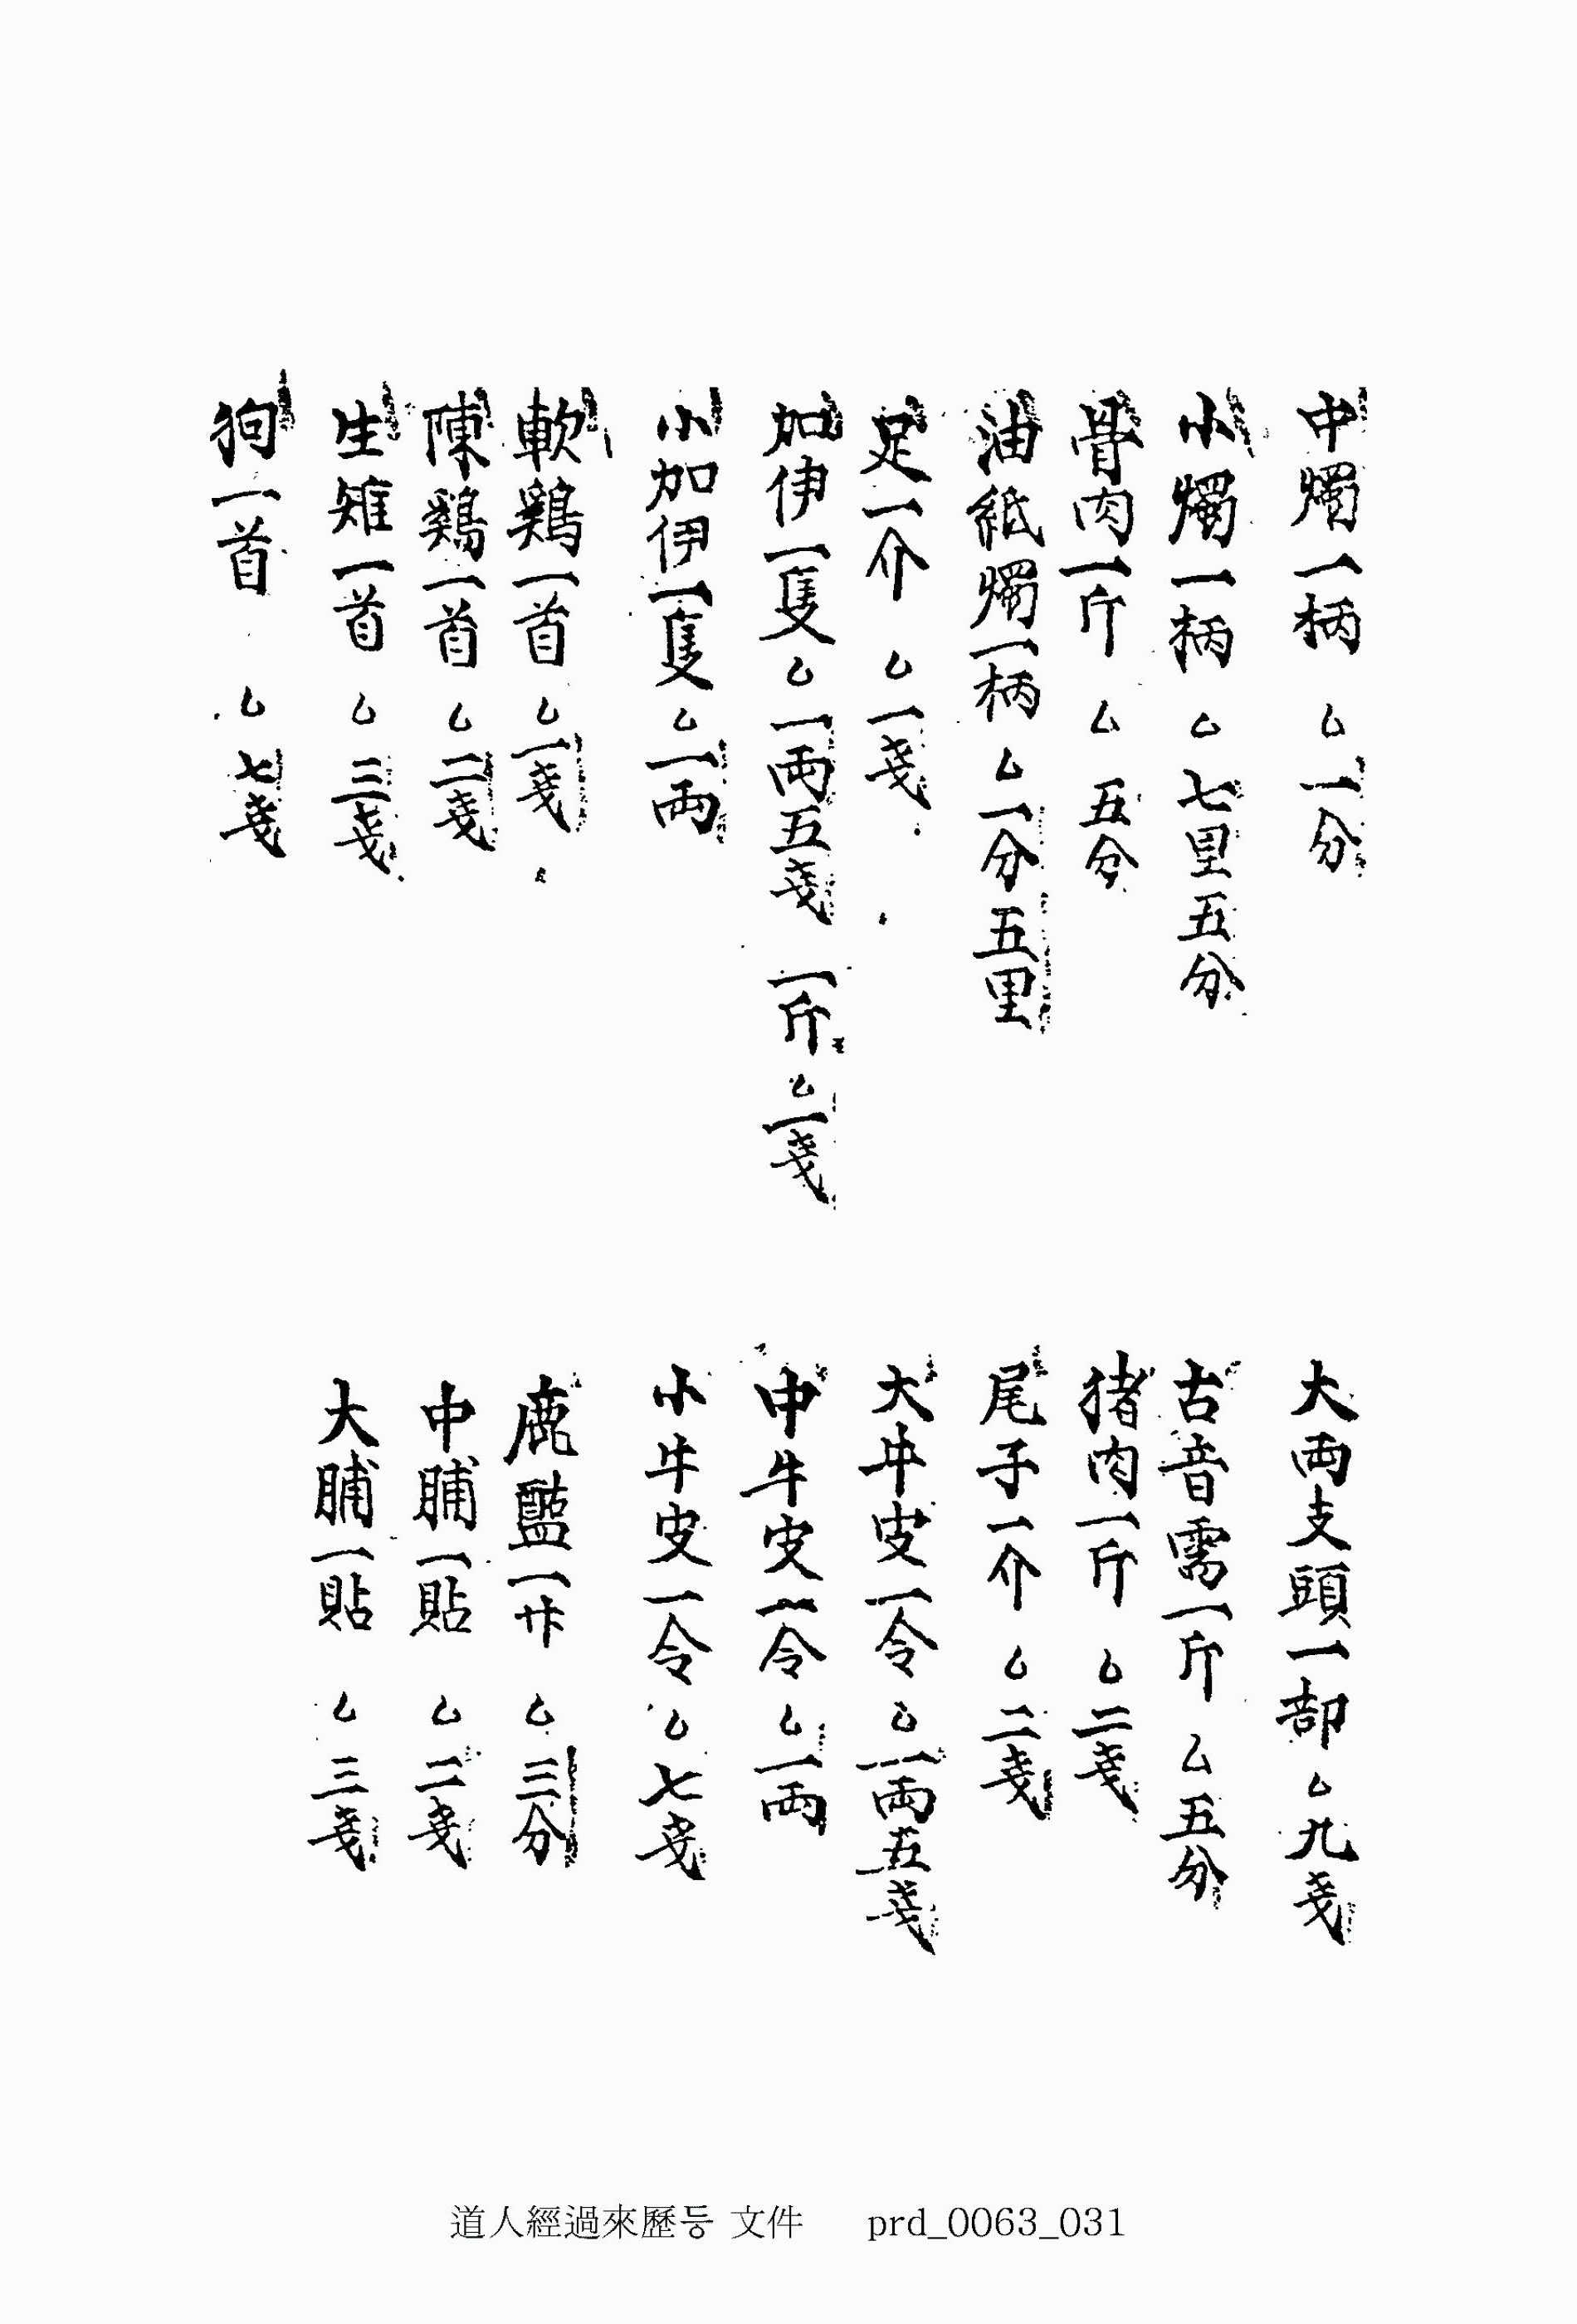 中燭一柄 乙一分
大両支頭一部 乙九戔
小燭一柄 乙七里五分
古音需一斤 乙五分
骨肉一斤 乙五分
猪肉一斤 乙二戔
油紙燭一柄 乙一分五里
尾子一介 乙二戔
足一介 乙一戔
大牛皮一令 乙一両五戔
加伊一隻 乙一両五戔 一斤 乙一戔
中牛皮一令 乙一両
小加伊一隻 乙一両
小牛皮一令 乙七戔
軟鷄一首 乙一戔
鹿醢一升 乙三分
陳鷄一首 乙二戔
中脯一貼 乙二戔
生雉一首 乙三戔
大脯一貼 乙三戔
狗一首 乙七戔
道人經過來歷등 文件 prd_0063_031